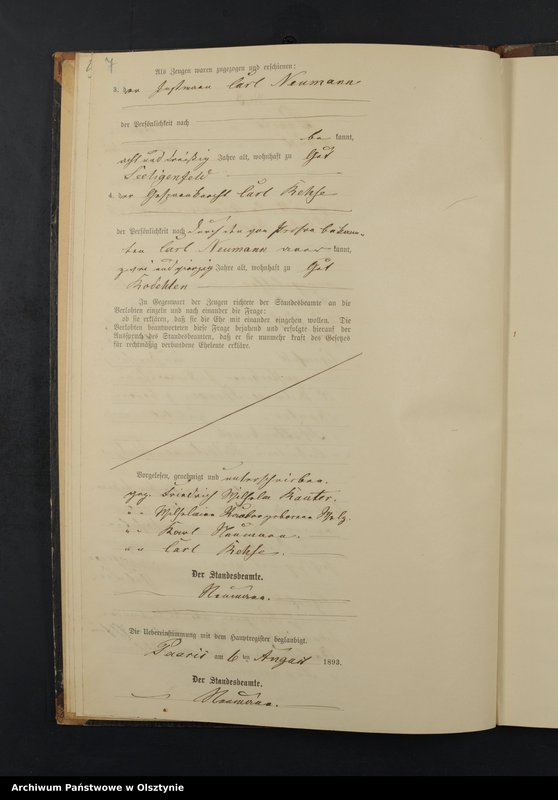 7
Als Zeugen waren zugezogen und erschienen:
3. der Instmann Carl Neumann
der Persönlichkeit nach
be kannt,
acht und dreißig Jahre alt, wohnhaft zu Gut
Seeligenfeld
4. der Gespannknecht Carl Rehse
der Persönlichkeit nach durch den von Person bekann-
ten Carl Neumann aner kannt,
zwei und vierzig Jahre alt, wohnhaft zu Gut
Kodehlen
In Gegenwart der Zeugen richtete der Standesbeamte an die
Verlobten einzeln und nach einander die Frage:
ob sie erklären, daß sie die Ehe mit einander eingehen wollen. Die
Verlobten beantworteten diese Frage bejahend und erfolgte hierauf der
Ausspruch des Standesbeamten, daß er sie nunmehr kraft des Gesetzes
für rechtmäßig verbundene Eheleute erkläre.
Vorgelesen, genehmigt und unterschrieben.
gez. Friedrich Wilhelm Kauter.
" " Wilhelmine geborene
" " Karl Neumann.
" " Carl Rehse.
Der Standesbeamte.
Neumann.
Die Uebereinstimmung mit dem Hauptregister beglaubigt.
Paaris am 6 ten August 1893.
Der Standesbeamte.
Neumann.
Archiwum Państwowe w Olsztynie